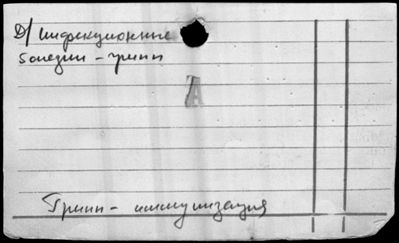 Д/ инфекционные
болезни - грипп
А
Грипп - иммунизация